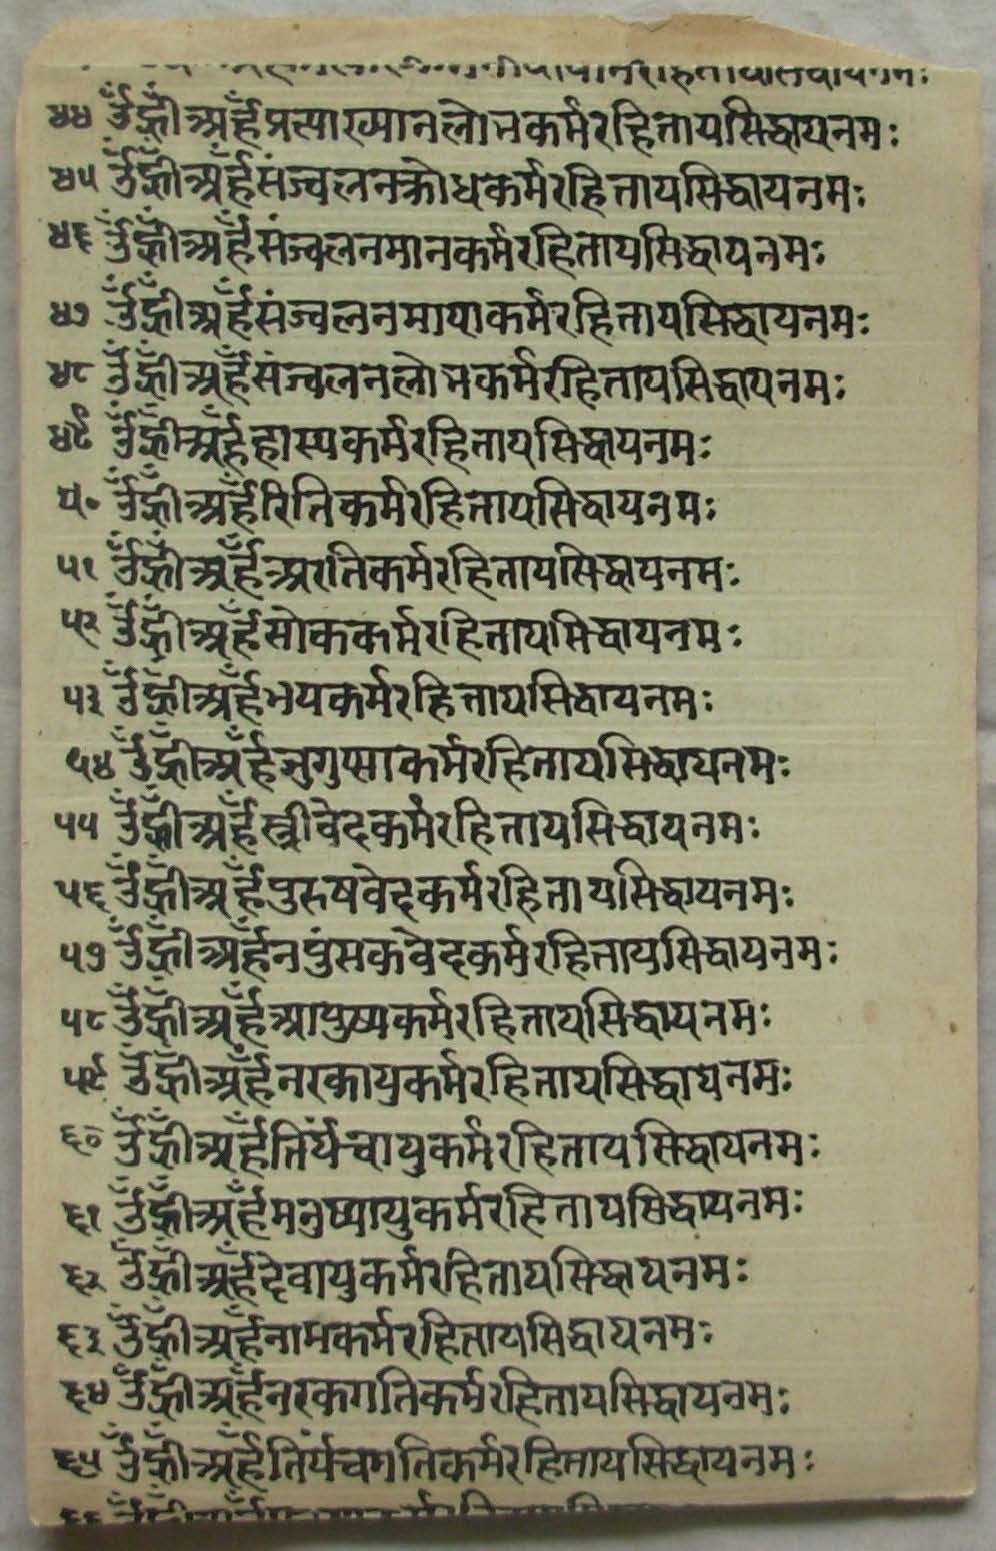 ४४ ॐह्रीँअर्हँप्रत्याख्यानलोभकर्मरहितायसिद्धायनमः
४५ ॐह्रीँअर्हँसंज्वलनक्रोधकर्मरहितायसिद्धायनमः
४६ ॐह्रीँअर्हँसंज्वलनमानकर्मरहितायसिद्धायनमः
४७ ॐह्रीँअर्हँसंज्वलनमायाकर्मरहितायसिद्धायनमः
४८ ॐह्रीँअर्हँसंज्वलनलोभकर्मरहितायसिद्धायनमः
४९ ॐह्रीँअर्हँहास्यकर्मरहितायसिद्धायनमः
५० ॐह्रीँअर्हँरितिकर्मरहितायसिद्धायनमः
५१ ॐह्रीँअर्हँअरतिकर्मरहितायसिद्धायनमः
५२ ॐह्रीँअर्हँसोककर्मरहितायसिद्धायनमः
५३ ॐह्रीँअर्हँभयकर्मरहितायसिद्धायनमः
५४ ॐह्रीँअर्हँजुगुप्साकर्मरहितायसिद्धायनमः
५५ ॐह्रीँअर्हँस्त्रीवेदकर्मरहितायसिद्धायनमः
५६ ॐह्रीँअर्हँपुरुषवेदकर्मरहितायसिद्धायनमः
५७ ॐह्रीँअर्हँनपुंसकवेदकर्मरहितायसिद्धायनमः
५८ ॐह्रीँअर्हँआयुष्यकर्मरहितायसिद्धायनमः
५९ ॐह्रीँअर्हँनरकायुकर्मरहितायसिद्धायनमः
६० ॐह्रीँअर्हँतिर्यंचायुकर्मरहितायसिद्धायनमः
६१ ॐह्रीँअर्हँमनुष्यायुकर्मरहितायसिद्धायनमः
६२ ॐह्रीँअर्हँदेवायुकर्मरहितायसिद्धायनमः
६३ ॐह्रीँअर्हँनामकर्मरहितायसिद्धायनमः
६४ ॐह्रीँअर्हँनरकगतिकर्मरहितायसिद्धायनमः
६५ ॐह्रीँअर्हँतिर्यंचगतिकर्मरहितायसिद्धायनमः